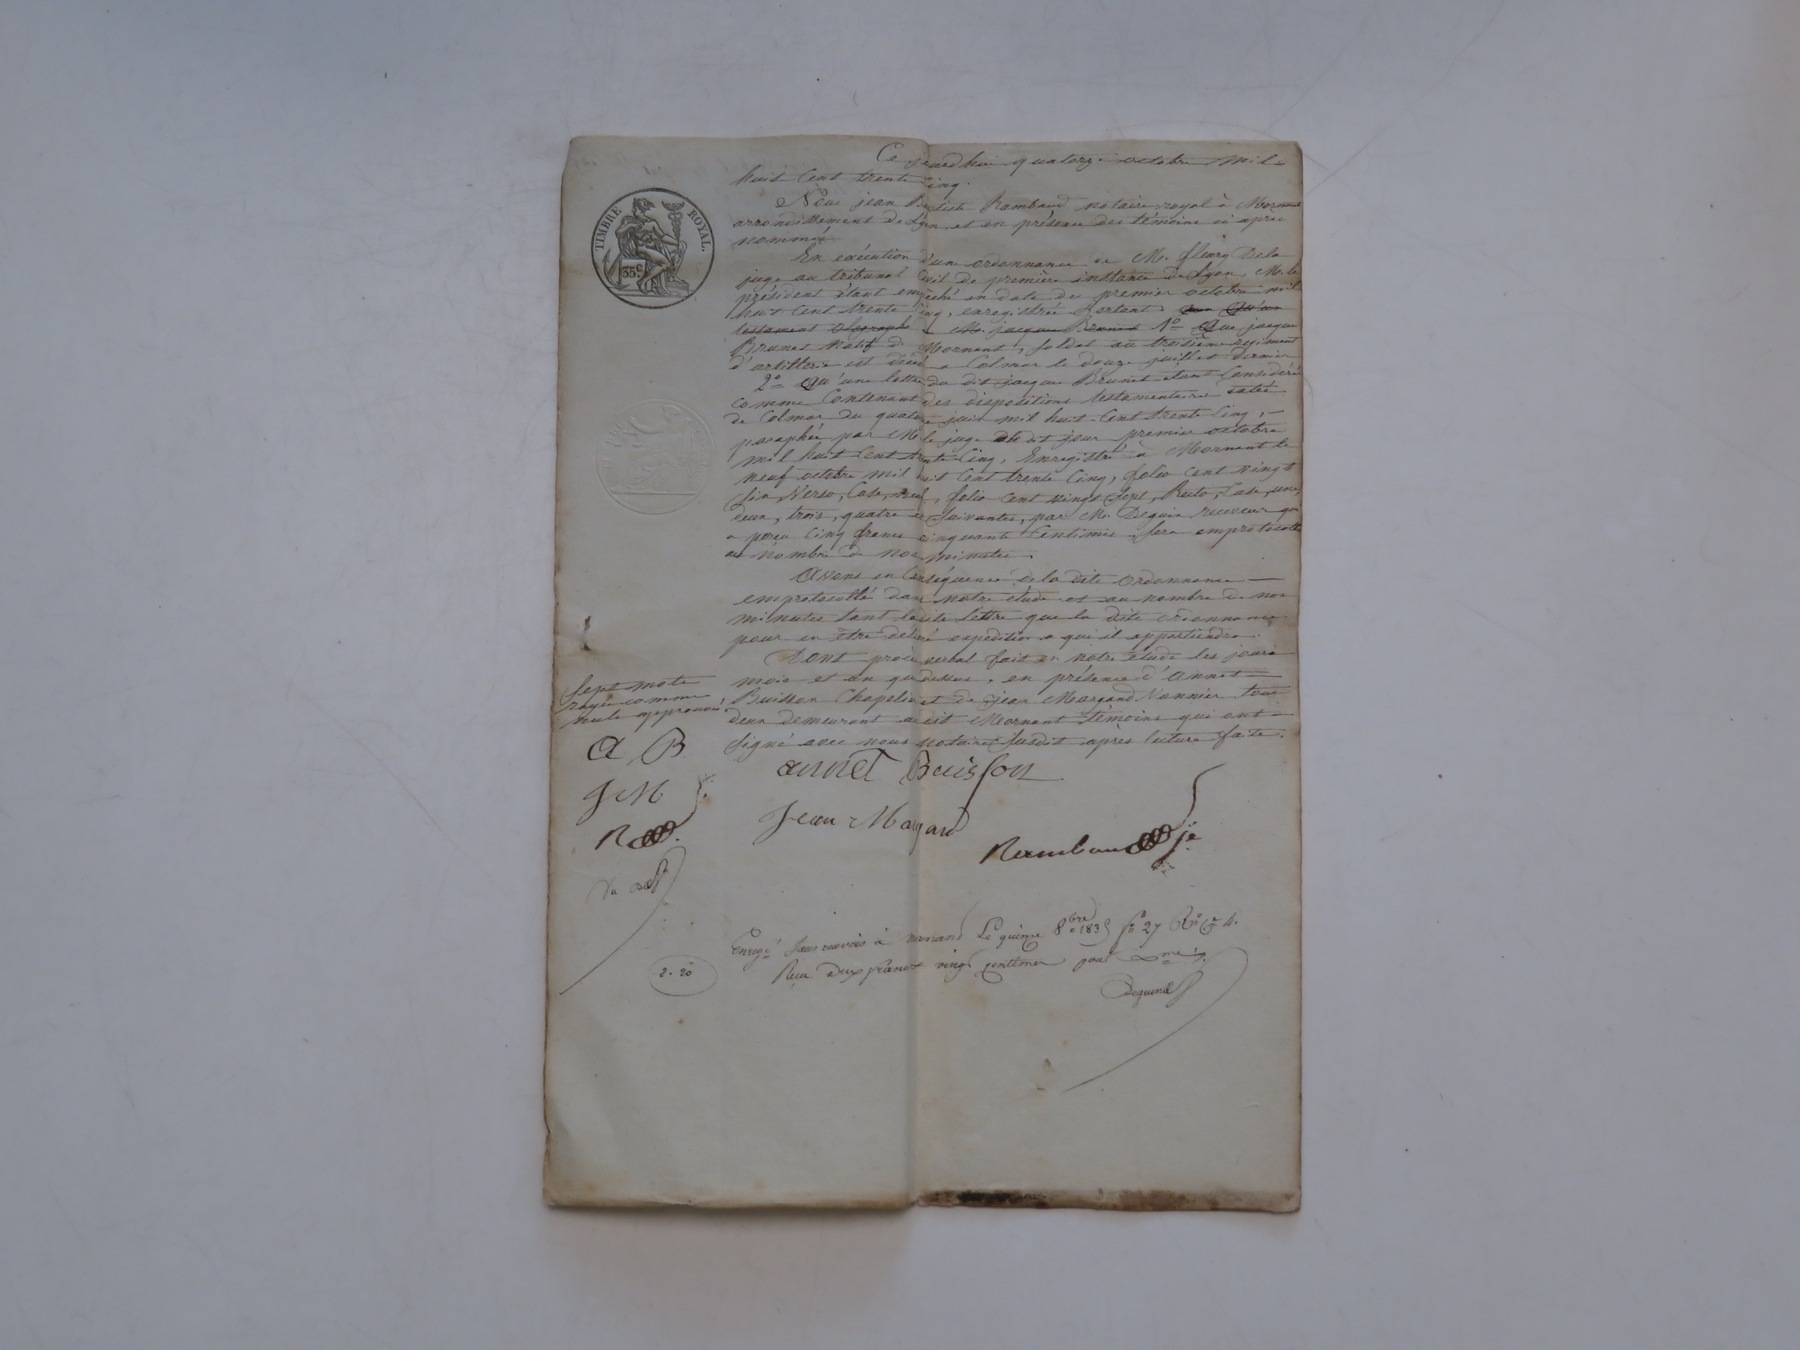 TIMBRE ROYAL.
35c.
Ce jourdhui quatorze octobre mil
huit Cent trente cinq.
Nous jean Baptiste Rambaud notaire royal à Mornant
arrondissement de Lyon, et en présence des témoins ci après
nommés
En exécution d'une ordonnance de M. fleury Dela
juge au tribunal Civil de première instance de Lyon, M. le
président étant empêché en date du premier octobre mil
huit Cent trente cinq, enregistrée Portant
testament olographe M. jacque Brunet 1o Que jacque
Brunet Natif de Mornant, soldat au troisième regiment
d'artillerie est décédé a Colmar le douze juillet dernier
2o Qu'une lettre du dit jacque Brunet étant Considéré
comme Contenant des dispositions testamentaire datée
de Colmar du quatre juin mil huit Cent trente Cinq, —
paraphée par M. le juge dit jour premier octobre
mil huit Cent trente Cinq, Enregistré à Mornant le
neuf octobre mil huit Cent trente Cinq, folio cent vingt
six, Verso, Case, neuf, folio Cent vingt sept, Recto, Case, une,
deux, trois, quatre et suivantes, par M. Dequin receveur qui
a perçu Cinq francs cinquante Centimes. sera emprotocollé
au nombre de nos minutes.
Avons en Conséquence de la dite ordonnance —
emprotocollé dans notre étude et au nombre de nos
minutes tant ladite lettre que la dite ordonnance
pour en être délivré expédition a qui il appartiendra.
Dont procès verbal fait en notre étude les jours
mois et an que dessus, en présence d'Annet
Buisson Chapelier et de jean Margand Vannier tous
deux demeurant audit Mornant témoins qui ont
signé avec nous notaire susdit après lecture faite.
Sept mots
rayés comme
nuls approuvés
A B.
J M
R
annet Buisson
Jean Margand
Rambaud
Enregé sans renvois à Mornant Le quinze 8bre 1835 fo 27 Ro Ce 4.
Reçu deux francs vingt centimes pour
2-20